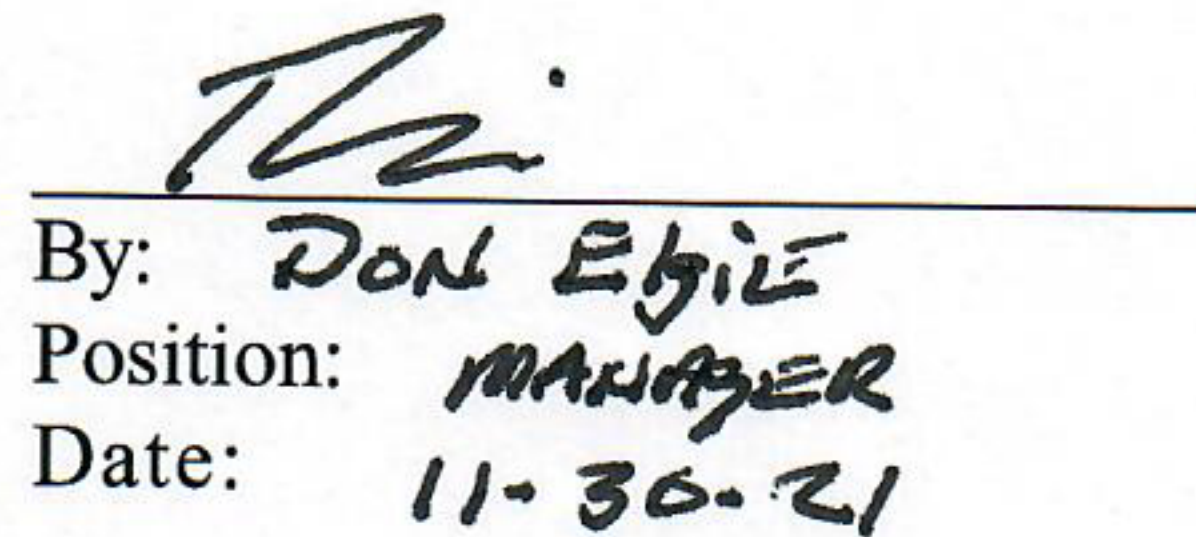 By: DON
Position: MANAGER
Date: 11-30-21